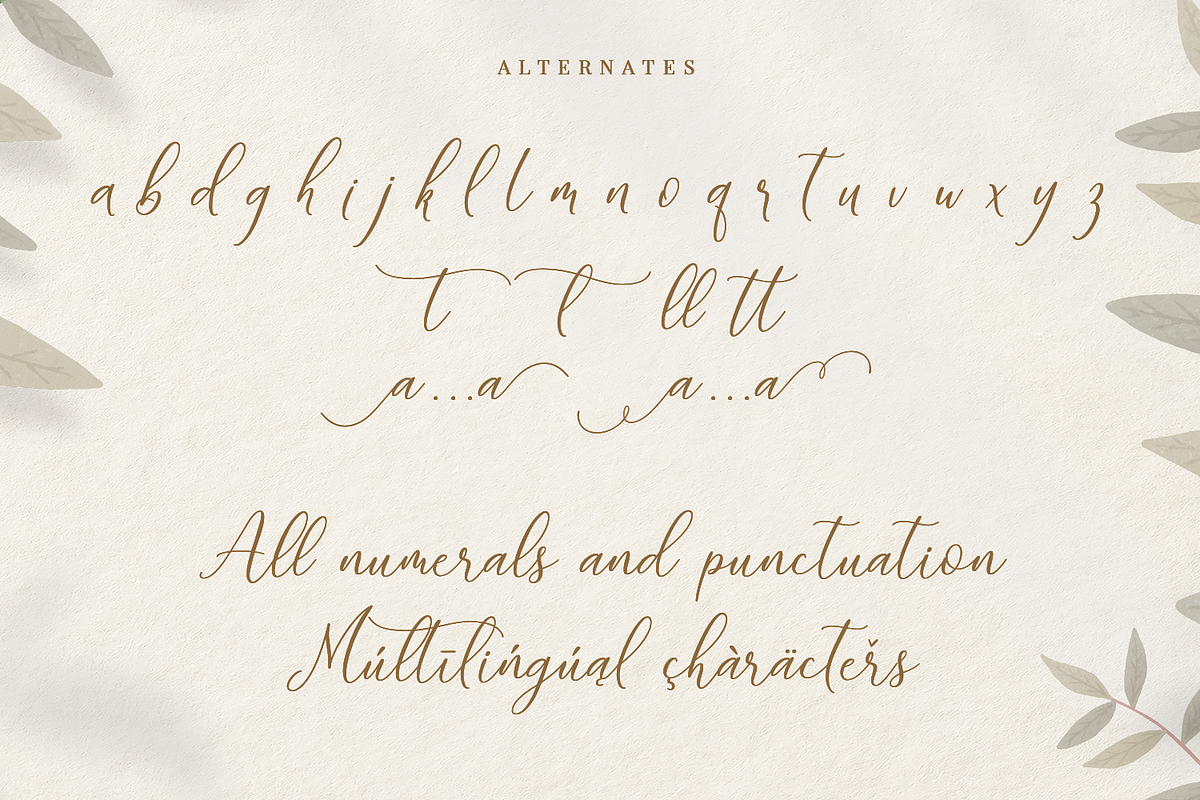 ALTERNATES
a b d g h i j k l l m n o q r t u v w x y z
t l ll tt
a...a a...a
All numerals and punctuation
Múltīlińgúąl çhàräcteřs